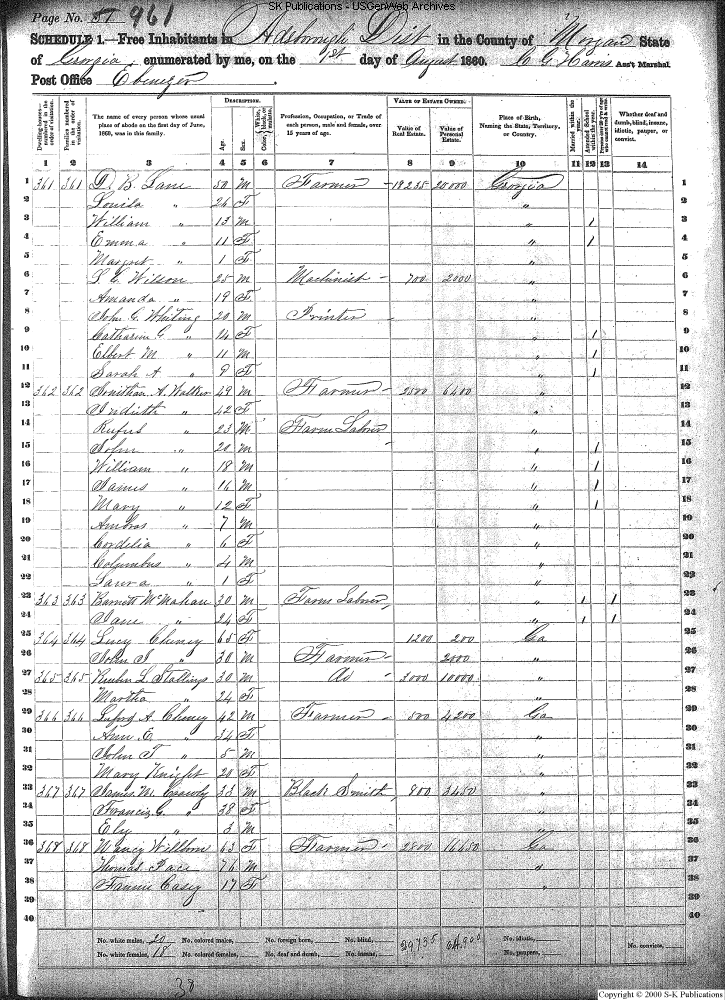 SK Publications - USGenWeb Archives
Page No. 57 961
SCHEDULE 1.—Free Inhabitants in Adsborough Dist in the County of Morgan State
of Georgia, enumerated by me, on the 1st day of August 1860. C G Harris Ass't Marshal.
Post Office Ebenezer.
DESCRIPTION. VALUE OF ESTATE OWNED.
Dwelling-houses—numbered in the order of visitation. Families numbered in the order of visitation. The name of every person whose usual place of abode on the first day of June, 1860, was in this family. Age. Sex. Color, White, black, or mulatto. Profession, Occupation, or Trade of each person, male and female, over 15 years of age. Value of Real Estate. Value of Personal Estate. Place of Birth, Naming the State, Territory, or Country. Married within the year. Attended School within the year. Whether deaf and dumb, blind, insane, idiotic, pauper, or convict.
1 2 3 4 5 6 7 8 9 10 11 12 13 14
1 361 361 Lane 50 M Farmer 20000 Georgia 1
2 Louisa " 26 F " 2
3 William " 13 M " / 3
4 Emma " 11 F " / 4
5 Margret " 1 F " 5
6 Wilson 25 M Machinist 700 2000 " 6
7 Amanda " 19 F " 7
8 John G Whiting 20 M Printer " 8
9 Catharine G " 14 F " / 9
10 Elbert M " 11 M " / 10
11 Sarah A " 9 F " / 11
12 362 362 Jonathan A. Walker 49 M Farmer 2500 6400 " 12
13 " 42 F " 13
14 Rufus " 23 M Farm Laborer " 14
15 John " 20 M " / 15
16 William " 18 M " / 16
17 James " 16 M " / 17
18 Mary " 12 F " / 18
19 Ambros " 7 M " 19
20 Cordelia " 6 F " 20
21 Columbus " 4 M " 21
22 Laura " 1 F " 22
23 363 363 Barnett McMahan 30 M Farm Laborer " / / 23
24 Jane " 24 F " / / 24
25 364 364 Lucy Cheney 65 F 1200 200 Ga 25
26 John " 30 M Farmer 2000 " 26
27 365 365 Stallings 30 M do 3000 10000 " 27
28 Martha " 24 F " 28
29 366 366 A. Cheney 42 M Farmer 500 4200 Ga 29
30 Ann E " 34 F " 30
31 John T " 5 M " 31
32 Mary Knight 20 F " 32
33 367 367 James M. 33 M Black Smith 800 3450 " 33
34 Francis G. " 28 F " 34
35 Ely " 3 M " 35
36 368 368 Nancy Willborn 63 F Farmer 2800 16650 Ga 36
37 Thomas Pace 76 M " 37
38 Fannie Casey 17 F " 38
39 39
40 40
No. white males, 20 No. colored males, No. foreign born, No. blind, 29735 No. idiotic, No. convicts,
No. white females, 18 No. colored females, No. deaf and dumb, No. insane, No. paupers,
38
Copyright © 2000 S-K Publications